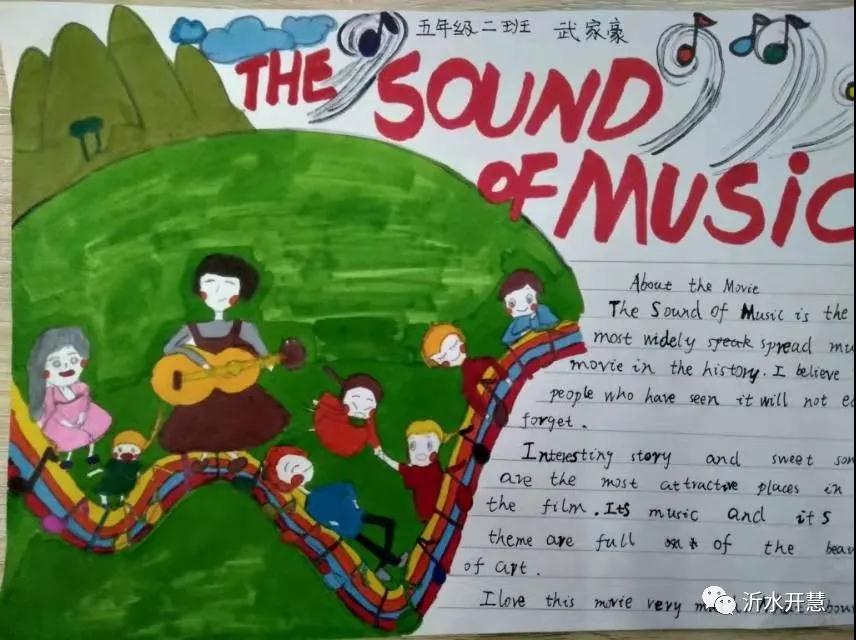 五年级二班 武家豪
THE SOUND
OF MUSIC
About the Movie
The Sound of Music is the
most widely speak spread mu
movie in the history. I believe
people who have seen it will not ea
forget.
Interesting story and sweet son
are the most attractive places in
the film. Its music and its
theme are full of the beau
of art.
I love this movie very
沂水开慧